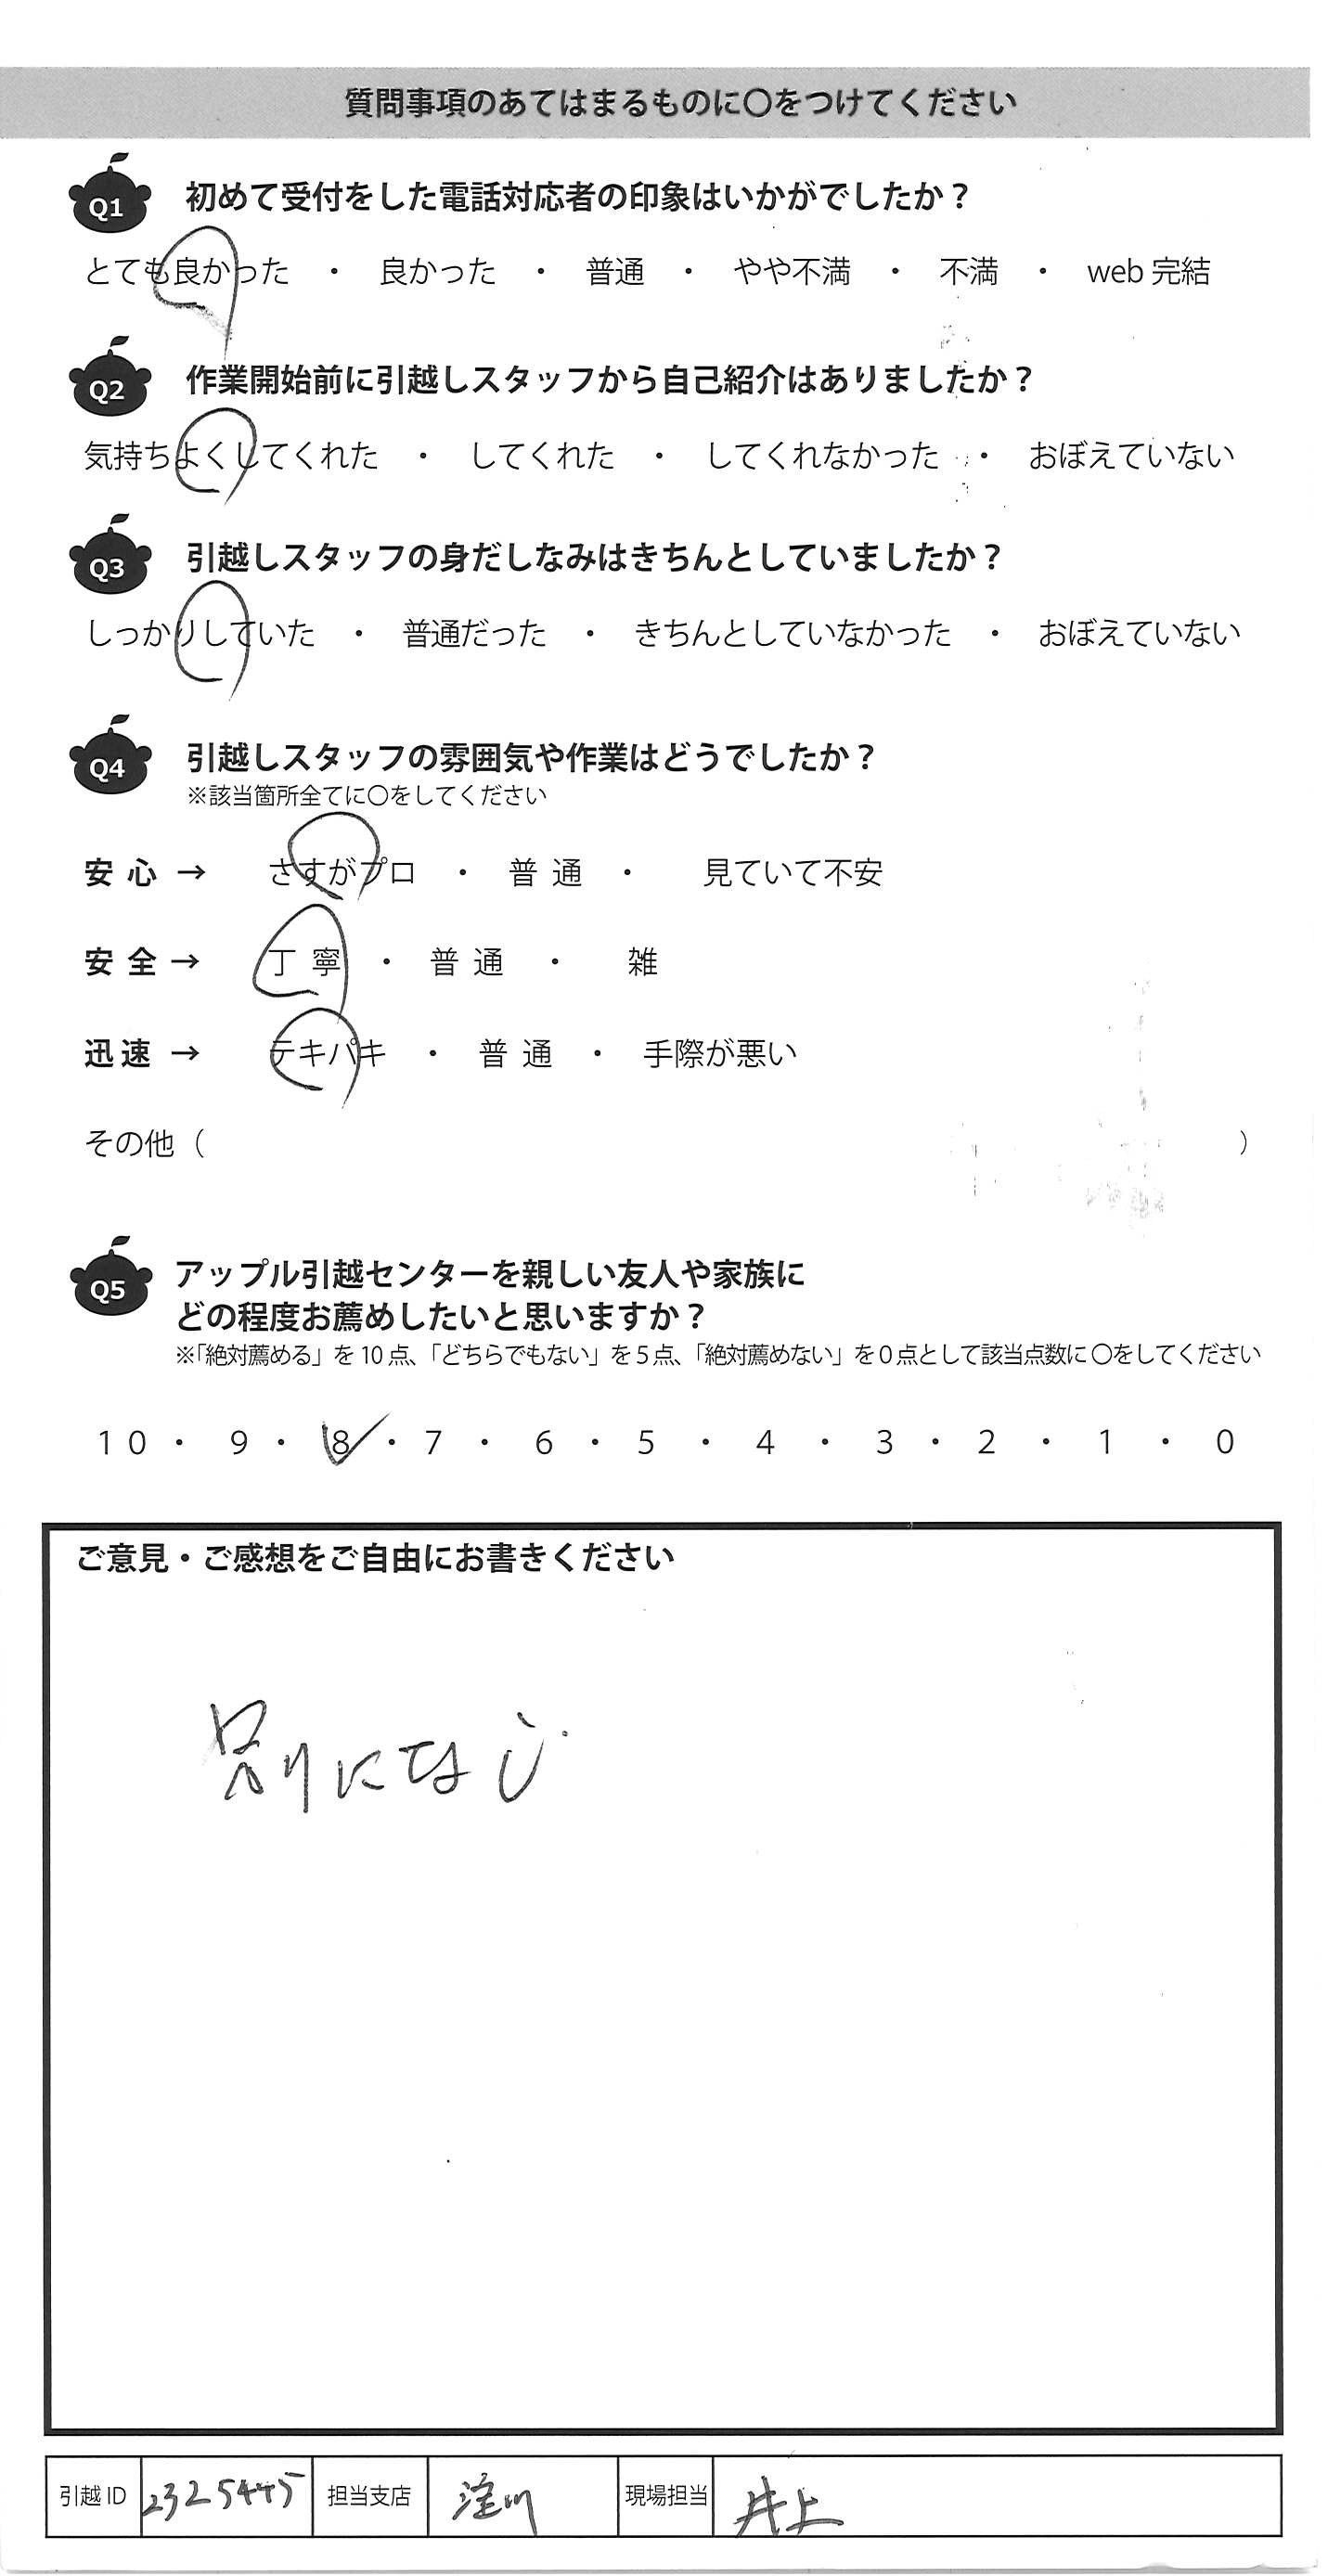 質問事項のあてはまるものに〇をつけてください
Q1 初めて受付をした電話対応者の印象はいかがでしたか？
とても良かった ・ 良かった ・ 普通 ・ やや不満 ・ 不満 ・ web 完結
Q2 作業開始前に引越しスタッフから自己紹介はありましたか？
気持ちよくしてくれた ・ してくれた ・ してくれなかった ・ おぼえていない
Q3 引越しスタッフの身だしなみはきちんとしていましたか？
しっかりしていた ・ 普通だった ・ きちんとしていなかった ・ おぼえていない
Q4 引越しスタッフの雰囲気や作業はどうでしたか？
※該当箇所全てに〇をしてください
安心 → さすがプロ ・ 普通 ・ 見ていて不安
安全 → 丁寧 ・ 普通 ・ 雑
迅速 → テキパキ ・ 普通 ・ 手際が悪い
その他（ ）
Q5 アップル引越センターを親しい友人や家族に
どの程度お薦めしたいと思いますか？
※「絶対薦める」を10点、「どちらでもない」を5点、「絶対薦めない」を0点として該当点数に〇をしてください
10 ・ 9 ・ 8 ・ 7 ・ 6 ・ 5 ・ 4 ・ 3 ・ 2 ・ 1 ・ 0
ご意見・ご感想をご自由にお書きください
別になし
引越ID 2325445 担当支店 淀川 現場担当 井上